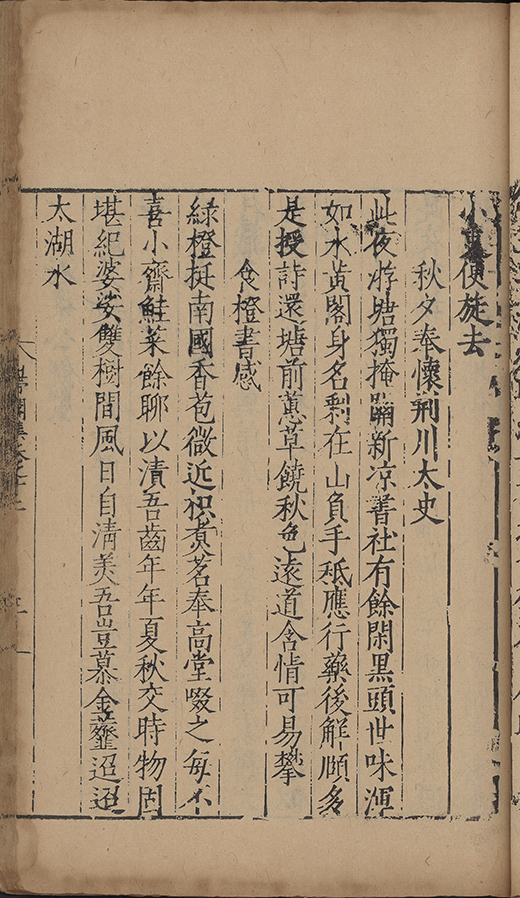 小 便旋去
秋夕奉懷荆川太史
此夜游踪獨掩關新凉書社有餘閑黑頭世味渾
如水黃閣身名剩在山負手秪應行藥後解頤多
是授詩還塘前蕙草饒秋色遠道含情可易攀
食橙書感
綠橙挺南國香苞微近枳煮茗奉高堂啜之每不
喜小齋鮭菜餘聊以漬吾齒年年夏秋交時物固
堪紀婆娑雙樹間風日自清美吾豈慕金虀迢迢
太湖水